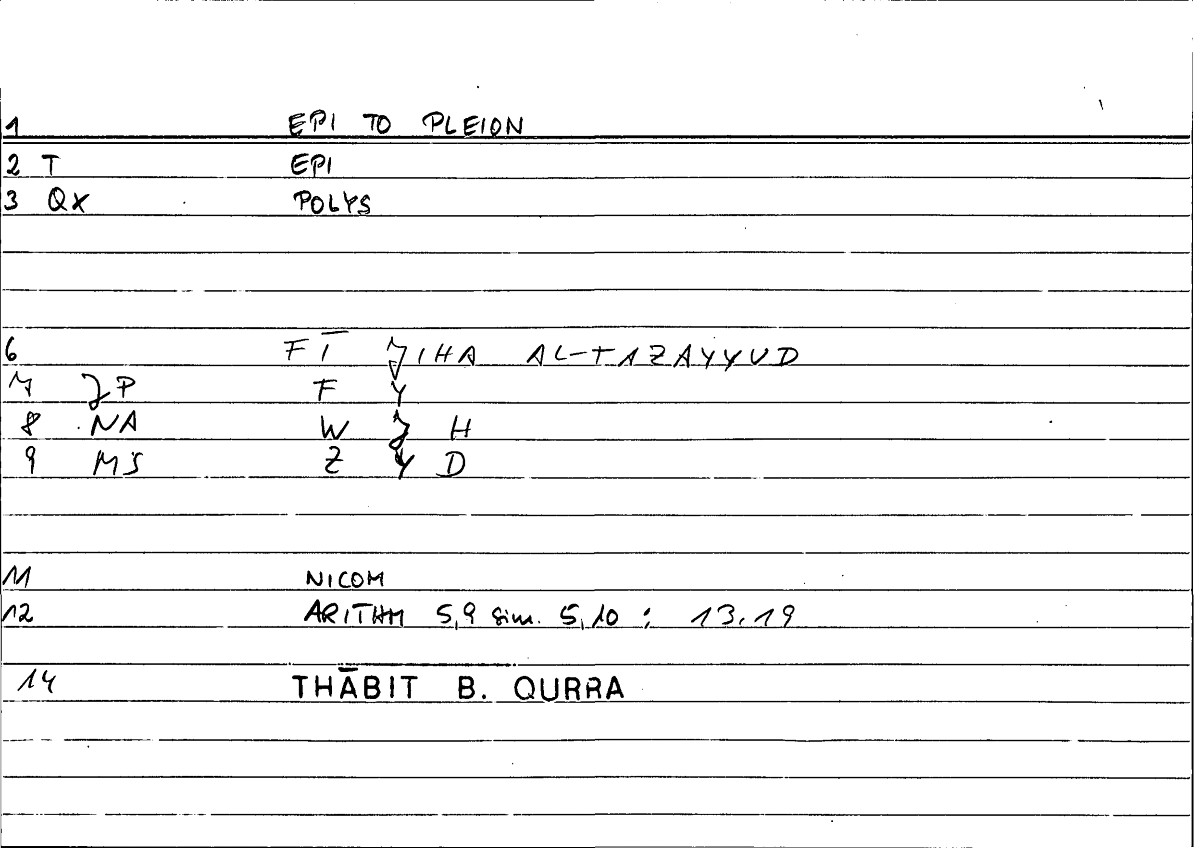 1 EPI TO PLEION
2 T EPI
3 QX POLYS
6 FĪ ǦIHA AL-TAZAYYUD
7 P F Y
8 NA W H
9 MS Z Y D
11 NICOM
12 ARITHM 5,9 sim. 5,10 : 13.19
14 THĀBIT B. QURRA